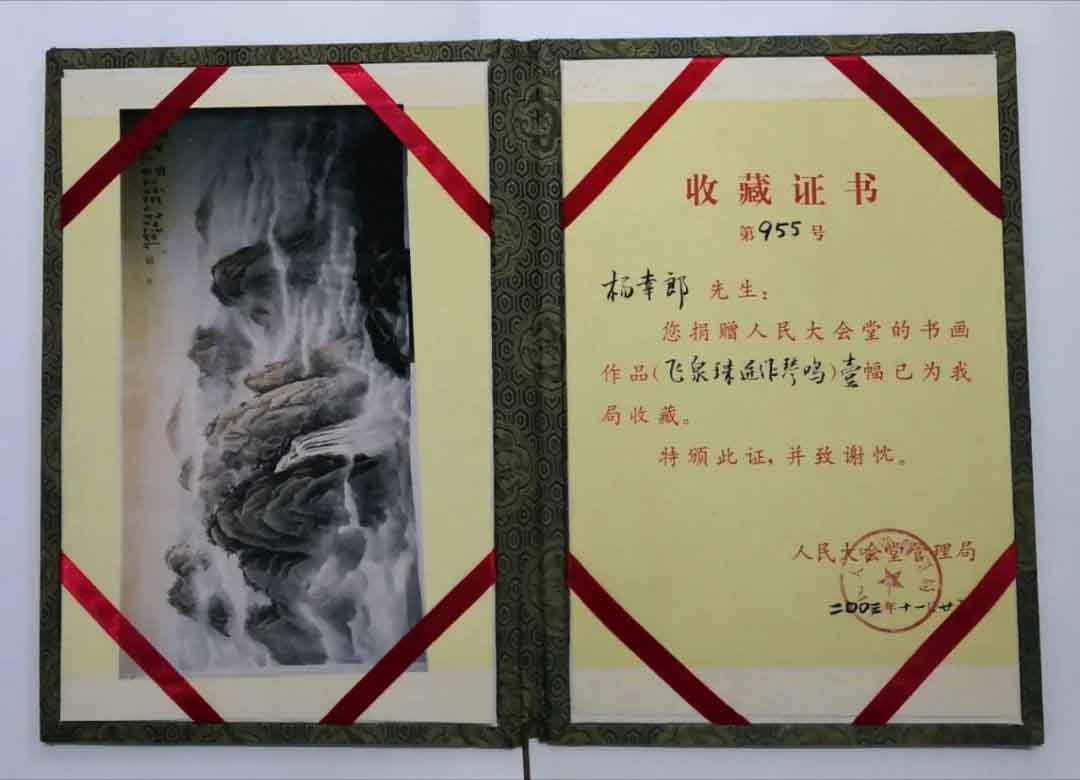 收藏证书
第955号
杨幸郎 先生：
您捐赠人民大会堂的书画
作品（飞泉 作琴鸣）壹幅已为我
局收藏。
特颁此证，并致谢忱。
人民大会堂管理局
二00三年十一月廿